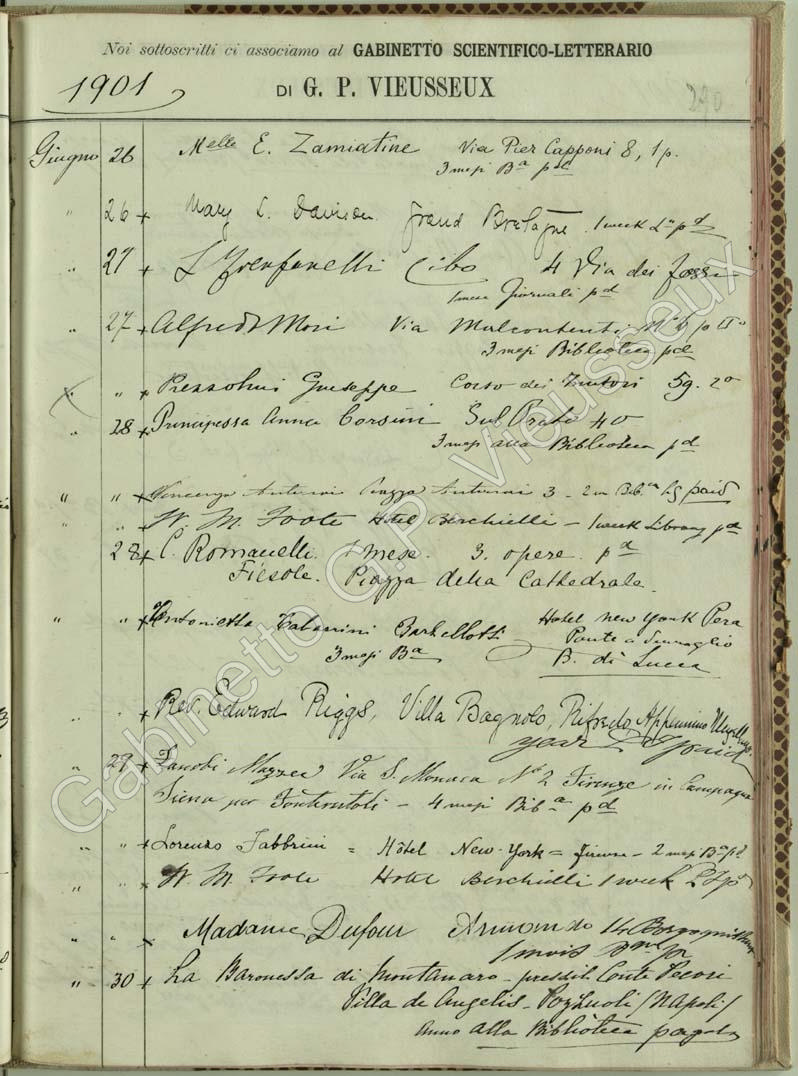 Noi sottoscritti ci associamo al GABINETTO SCIENTIFICO-LETTERARIO
1901
DI G. P. VIEUSSEUX
290
Giugno 26 Melle E. Zamiatine Via Pier Capponi 8, 1 p.
3 mesi Ba pd
" 26 + Mary L. Davison Grand Bretagne 1 week pd
" 27 + Cibo 4 Via dei Fossi
1 mese Giornali pd
" 27 + Alfredo Mori Via Malcontenti No 6 po IIo
3 mesi Biblioteca pd
" + Prezzolini Giuseppe Corso dei Tintori 59. 2o
" 28 + Principessa Anna Corsini Sul Prato 40
3 mesi alla Biblioteca pd
" " + Vincenzo Antinori Piazza Antinori 3 - paid
" + W. M. Foote Hotel Berchielli - 1 week Library pd
28 + C. Romanelli. 1 mese. 3. opere. pd
Fiesole. Piazza della Cathedrale.
" " + Antonietta Tabarrini Hotel New York Pera
3 mesi Ba Ponte a Serraglio
B. di Lucca
" " + Rev. Edward Riggs, Villa Bagnolo, Rifredo, Appennino
year paid
" 29 + Zanobi Mazzei Via S. Monaca No 2 Firenze in Campagna
Siena per Fonterutoli - 4 mesi Biba pd
" " + Lorenzo Fabbrini = Hôtel New-York = Firenze - 2 mesi Ba pd
" " + W. M. Foote Hotel Berchielli 1 week
" " Madame Dufour Armando 14 Borgognissanti
1 mois
" 30 + La Baronessa di Montanaro - presso il Conte Pecori
Villa de Angelis - Pozzuoli / Napoli /
Anno alla Biblioteca pagato
Gabinetto G.P. Vieusseux